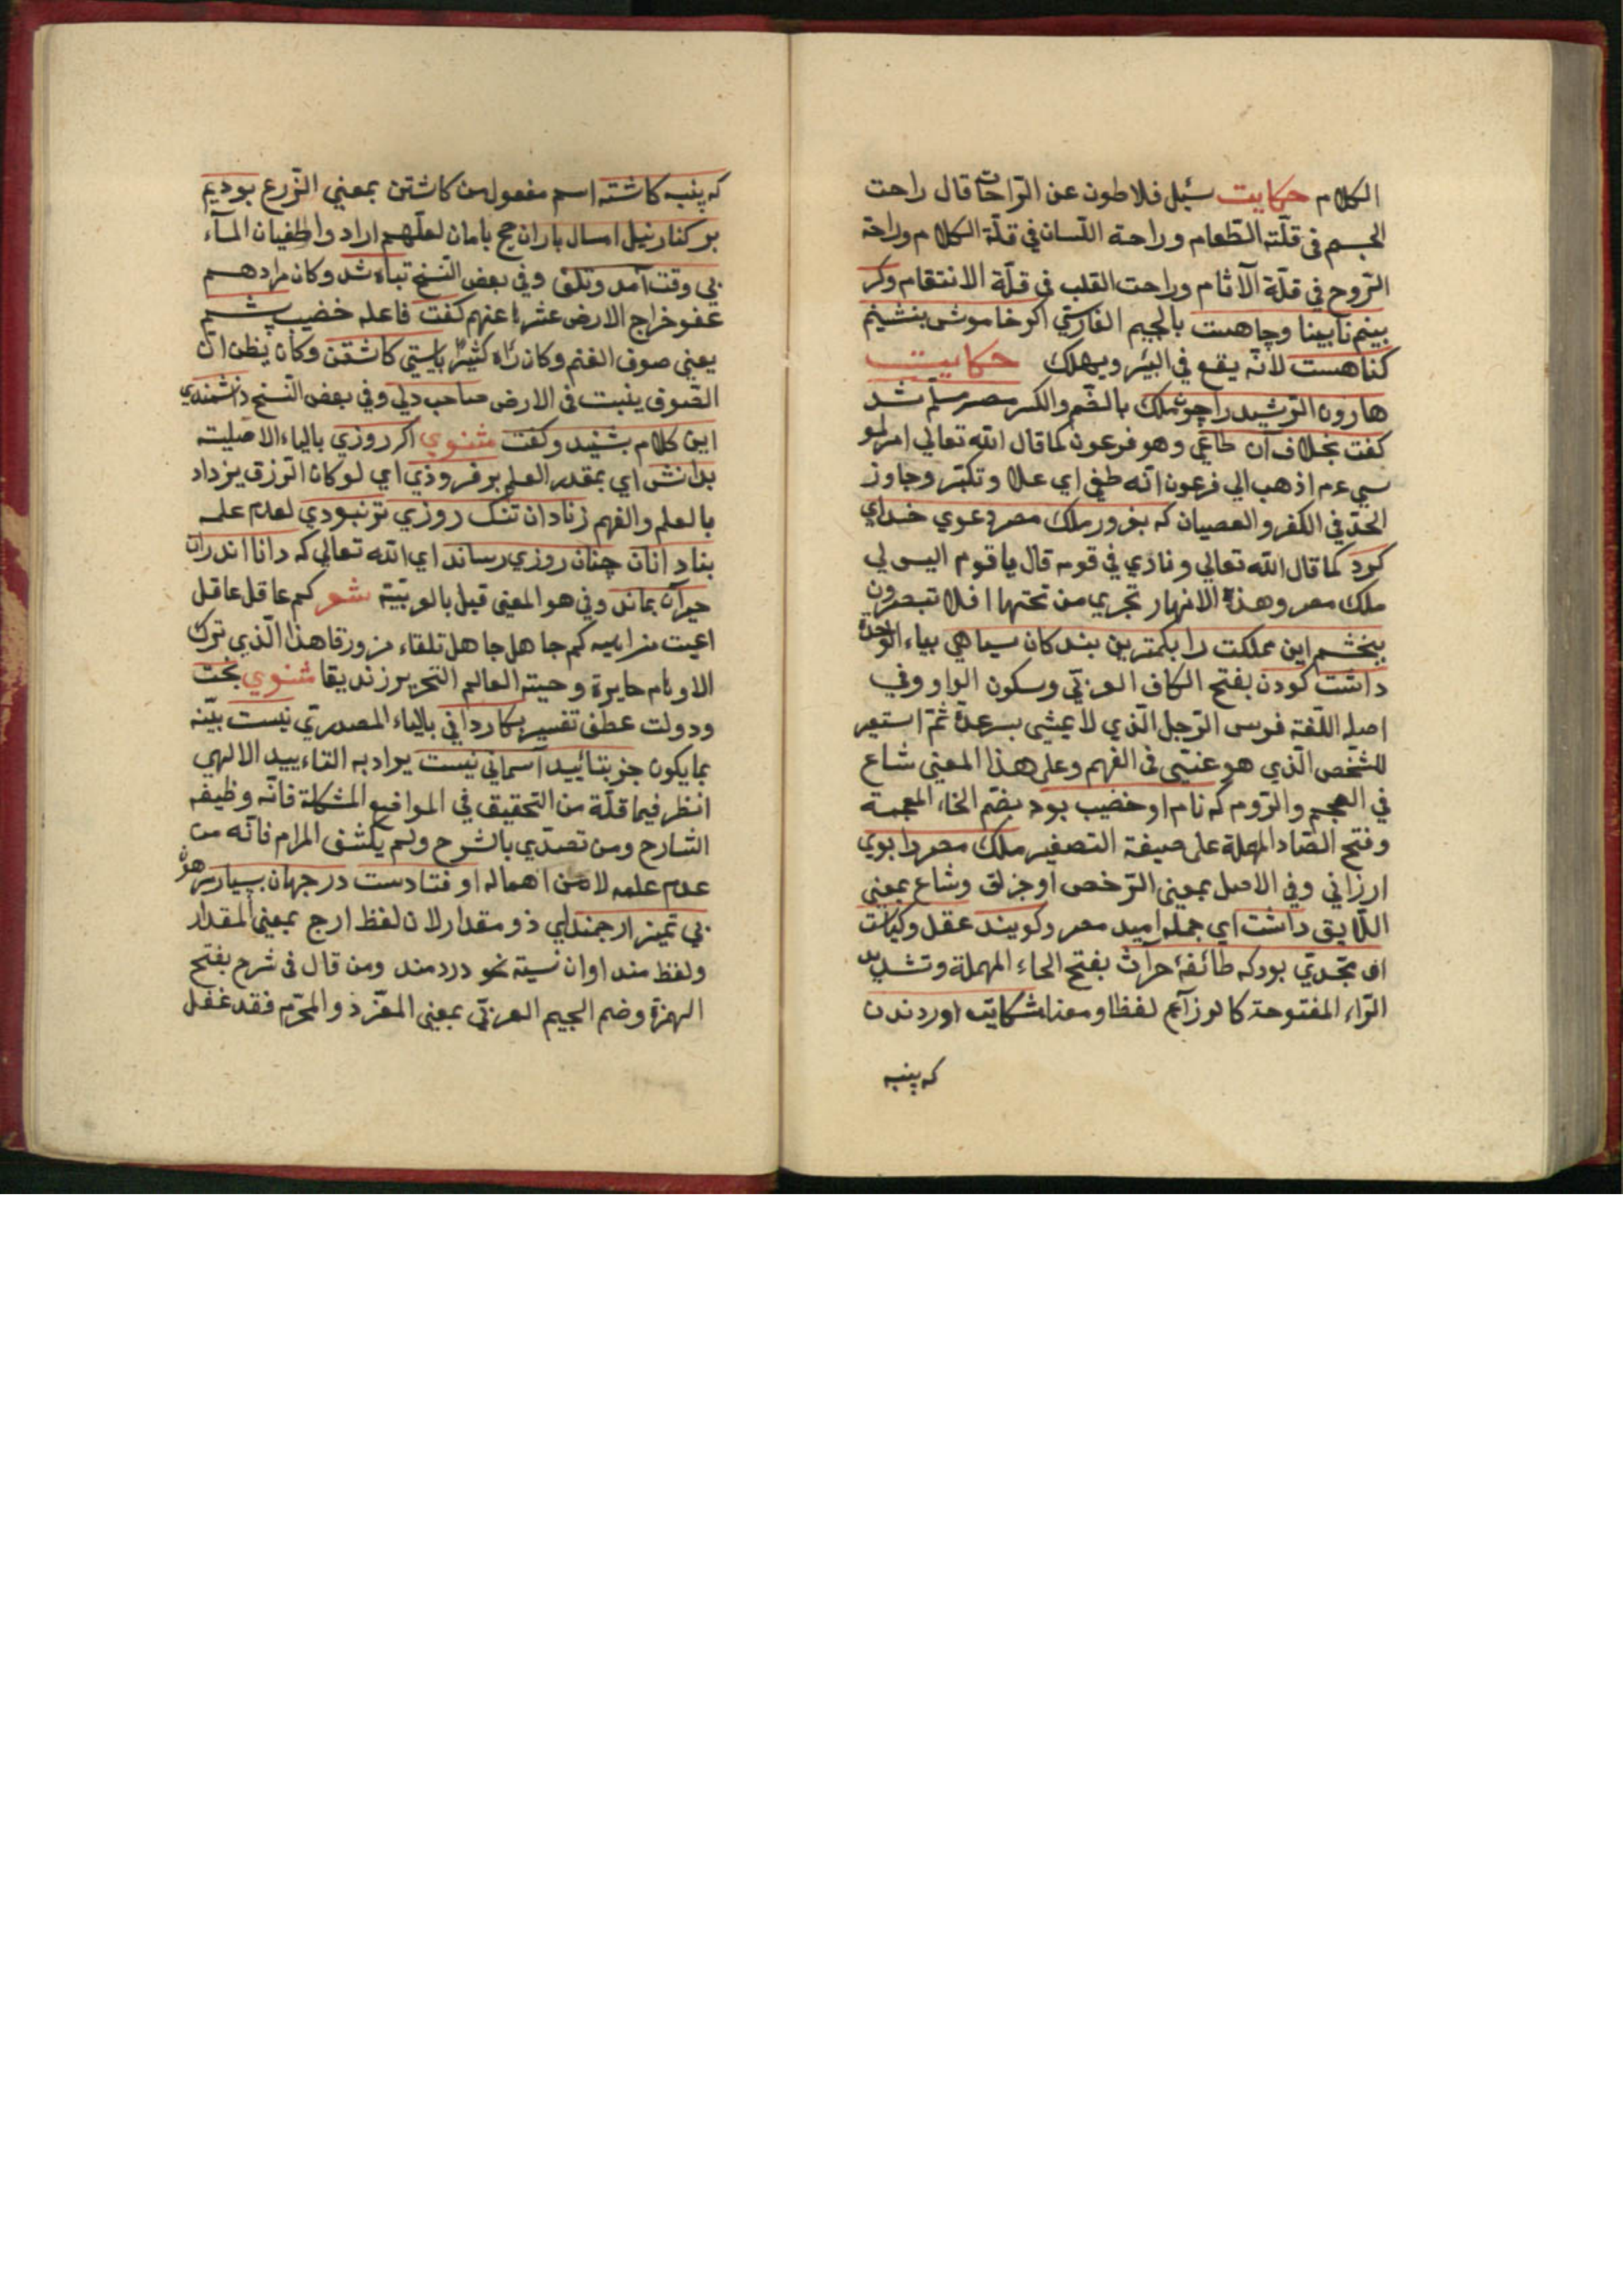 الكلام حكايت سئل فلاطون عن الراحات قال راحت
الجسم فى قلّة الطّعام وراحة اللّسان في قلّة الكلام وراحة
الرّوح في قلّة الآثام وراحت القلب في قلّة الانتقام وكر
بينم نابينا وچاهست بالجيم الفارسي اكر خاموش بنشينم
كناهست لانّه يقع في البئر ويهلك حكايت
هارون الرّشيد را چون ملك بالضّم والكسر مصر مسلّم شد
كفت بخلاف آن طاغي وهو فرعون كما قال الله تعالي امر لمو
سي عم اذهب الي فرعون انّه طغي اي علا وتكبّر وجاوز
الحدّ في الكفر والعصيان كه بغرور ملك مصر دعوي خداي
كرد كما قال الله تعالي ونادي في قومه قال يا قوم اليس لي
ملك مصر وهذه الانهار تجري من تحتها افلا تبصرون
ببخشم اين مملكت را بكمترين بندكان سياهي بياء الوحدة
داشت كودن بفتح الكاف العربيّ وسكون الواو وفي
اصل اللّغة فرس الرّجل الّذي لا يمشي بسرعة ثمّ استعير
للشّخص الّذي هو غبيّ فى الفهم وعلي هذا المعني شاع
في العجم والرّوم كه نام او خضيب بود بضّم الخاء المعجمة
وفتح الضّاد المهملة علي صيغة التصغير ملك مصر را بوي
ارزاني وفي الاصل بمعني الرّخص او جزلق وشاع بمعني
اللّايق داشت اي جمله اميد مصر وكويند عقل وكياست
او بحدّي بود كه طائفهٔ حرّاث بفتح الحاء المهملة وتشديد
الرّاء المفتوحة كالوزّاع لفظا ومعنا شكايت اوردندن
كه پنبه
كه پنبه كاشته اسم مفعول من كاشتن بمعني الزّرع بوديم
بر كنار نيل امسال باران حج بامان لعلّهم ارادوا طغيان المآء
بي وقت آمد وتلف وفي بعض النّسخ تباه شد وكان مرادهم
عفو خراج الارض عشرا عنهم كفت فاعله خضيب پشم
يعني صوف الغنم وكان راه كثيرا بايستي كاشتن وكان يظن انّ
الصّوف ينبت فى الارض صاحب دلي وفي بعض النّسخ دانشمندي
اين كلام بشنيد وكفت مثنوي اكر روزي بالياء الاصليّة
بدانش اي بمقدر العلم بر فروذي اي لو كان الرّزق يزداد
بالعلم والفهم زنادان تنك روزي تر نبودي لعدم علمه
بنادانان چنان روزي رساند اي الله تعالي كه دانا اندران
حيران بماند وفي هو المعني قيل بالعربيّة شعر كم عاقل عاقل
اعيت مذاهبه كم جاهل جاهل تلقاه مرزوقا هذا الّذي ترك
الاوهام حايرة وصيّر العالم النّحرير زنديقا مثنوي بخت
ودولت عطف تفسير بكارداني بالياء المصدريّ نيست بيّنه
بما يكون جز بتائيد آسماني نيست يراد به التاءييد الالهي
انظر فيما قلّة من التحقيق في المواضع المشكلة فانّه وظيفه
الشارح ومن تصدّي بالشرح ولم يكشف المرام فانّه من
عدم علمه لا من اهماله اوفتادست در جهان بسيار مرهون
بي تميز ارجمند اي ذو مقدار لان لفظ ارج بمعني المقدار
ولفظ مند اوان نسبته نحو دردمند ومن قال فى شرح بفتح
الهمزة وضم الجيم العربيّ بمعني المعزّز والمحرّم فقد غفل